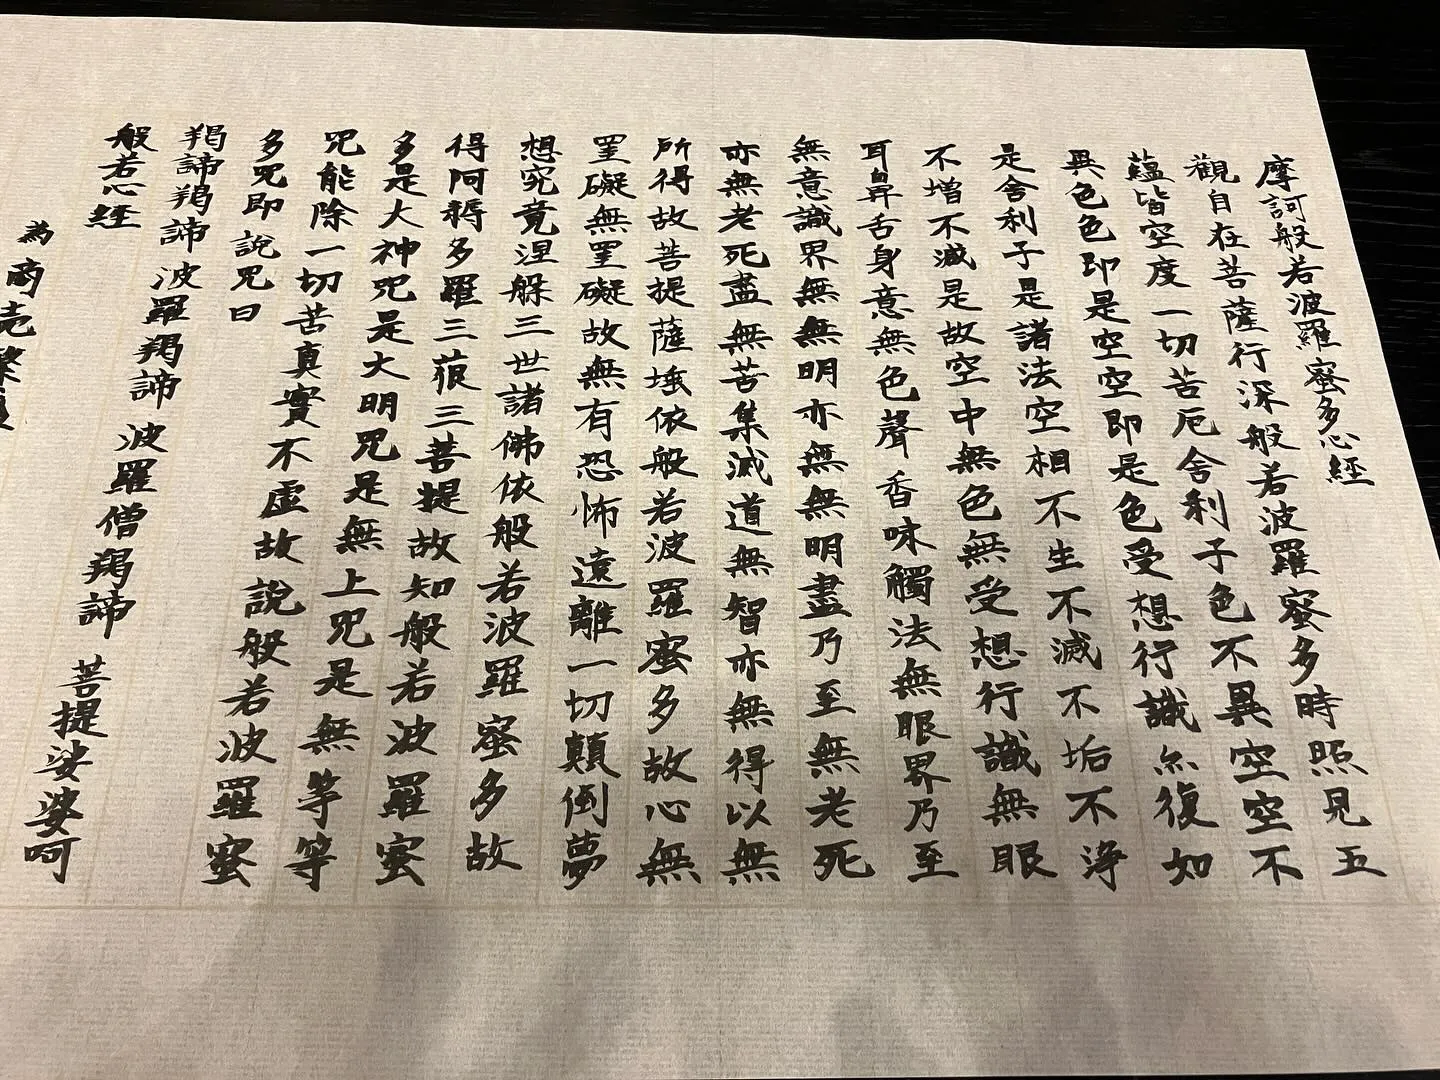 摩訶般若波羅蜜多心経
觀自在菩薩行深般若波羅蜜多時照見五
蘊皆空度一切苦厄舍利子色不異空空不
異色色即是空空即是色受想行識亦復如
是舍利子是諸法空相不生不滅不垢不浄
不増不滅是故空中無色無受想行識無眼
耳鼻舌身意無色聲香味觸法無眼界乃至
無意識界無無明亦無無明盡乃至無老死
亦無老死盡無苦集滅道無智亦無得以無
所得故菩提薩埵依般若波羅蜜多故心無
罣礙無罣礙故無有恐怖遠離一切顛倒夢
想究竟涅槃三世諸佛依般若波羅蜜多故
得阿耨多羅三藐三菩提故知般若波羅蜜
多是大神咒是大明咒是無上咒是無等等
咒能除一切苦真實不虛故説般若波羅蜜
多咒即説咒曰
羯諦羯諦 波羅羯諦 波羅僧羯諦 菩提娑婆呵
般若心経
為商売繁